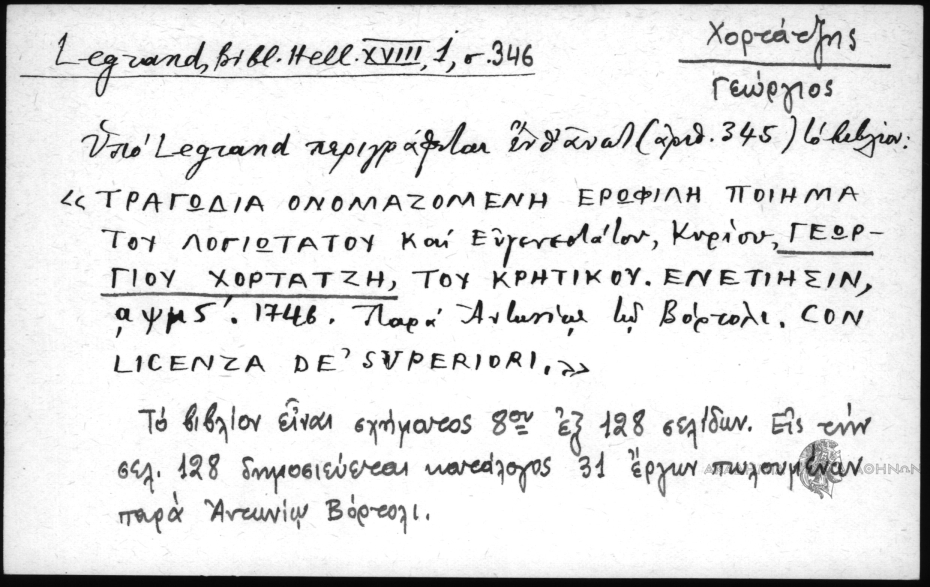 Legrand, Bibl. Hell. XVIII, 1, σ. 346
Χορτάτζης
Γεώργιος
Ὑπό Legrand περιγράφεται ἐνθ' ἀνωτ. (ἀριθ. 345) τό βιβλίον:
« ΤΡΑΓΩΔΙΑ ΟΝΟΜΑΖΟΜΕΝΗ ΕΡΩΦΙΛΗ ΠΟΙΗΜΑ
ΤΟΥ ΛΟΓΙΩΤΑΤΟΥ καί Εὐγενεστάτου, Κυρίου, ΓΕΩΡ-
ΓΙΟΥ ΧΟΡΤΑΤΖΗ, ΤΟΥ ΚΡΗΤΙΚΟΥ. ΕΝΕΤΙΗΣΙΝ,
͵αψμϛʹ. 1746. Παρά Ἀντωνίῳ τῷ Βόρτολι. CON
LICENZA DE' SUPERIORI. »
Τό βιβλίον εἶναι σχήματος 8ον ἐξ 128 σελίδων. Εἰς τήν
σελ. 128 δημοσιεύεται κατάλογος 31 ἔργων πωλουμένων
παρὰ Ἀντωνίῳ Βόρτολι.